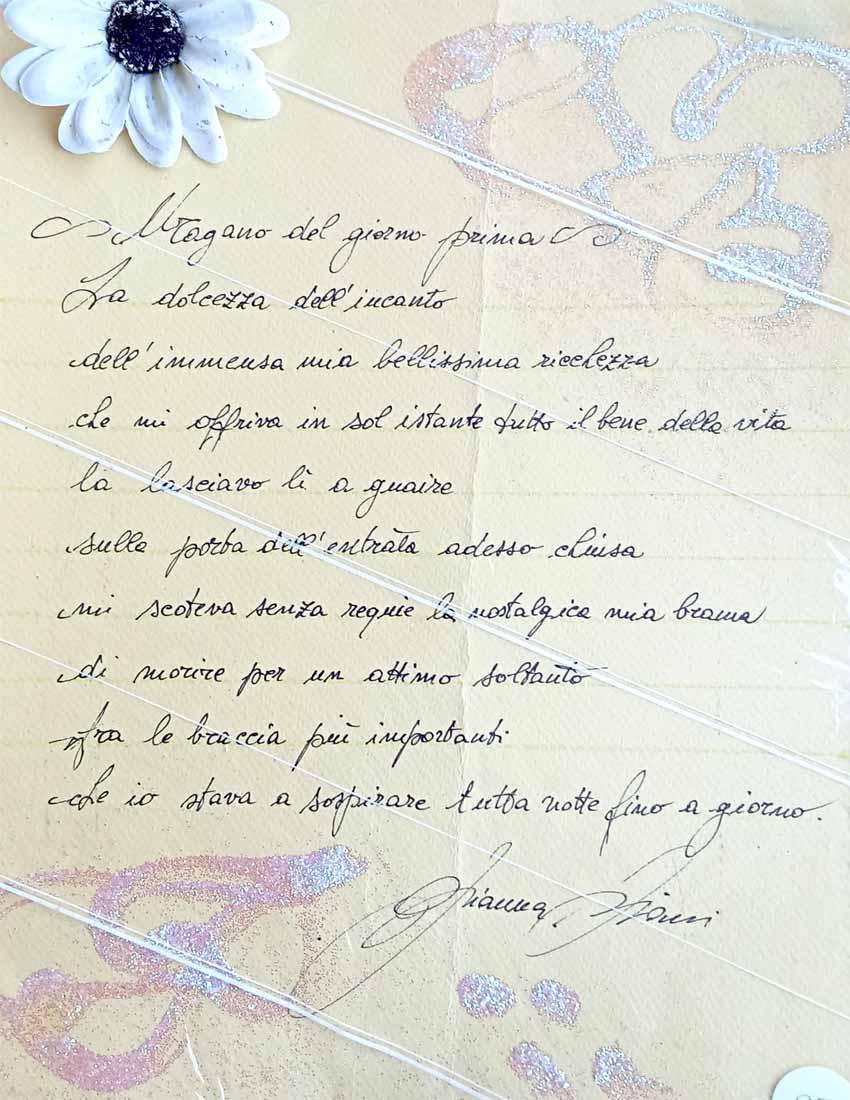 Uragano del giorno prima
La dolcezza dell'incanto
dell'immensa mia bellissima ricchezza
che mi offriva in sol istante tutto il bene della vita
la lasciavo lì a guaire
sulla porta dell'entrata adesso chiusa
mi scoteva senza requie la nostalgica mia brama
di morire per un attimo soltanto
fra le braccia più importanti
che io stava a sospirare tutta notte fino a giorno.